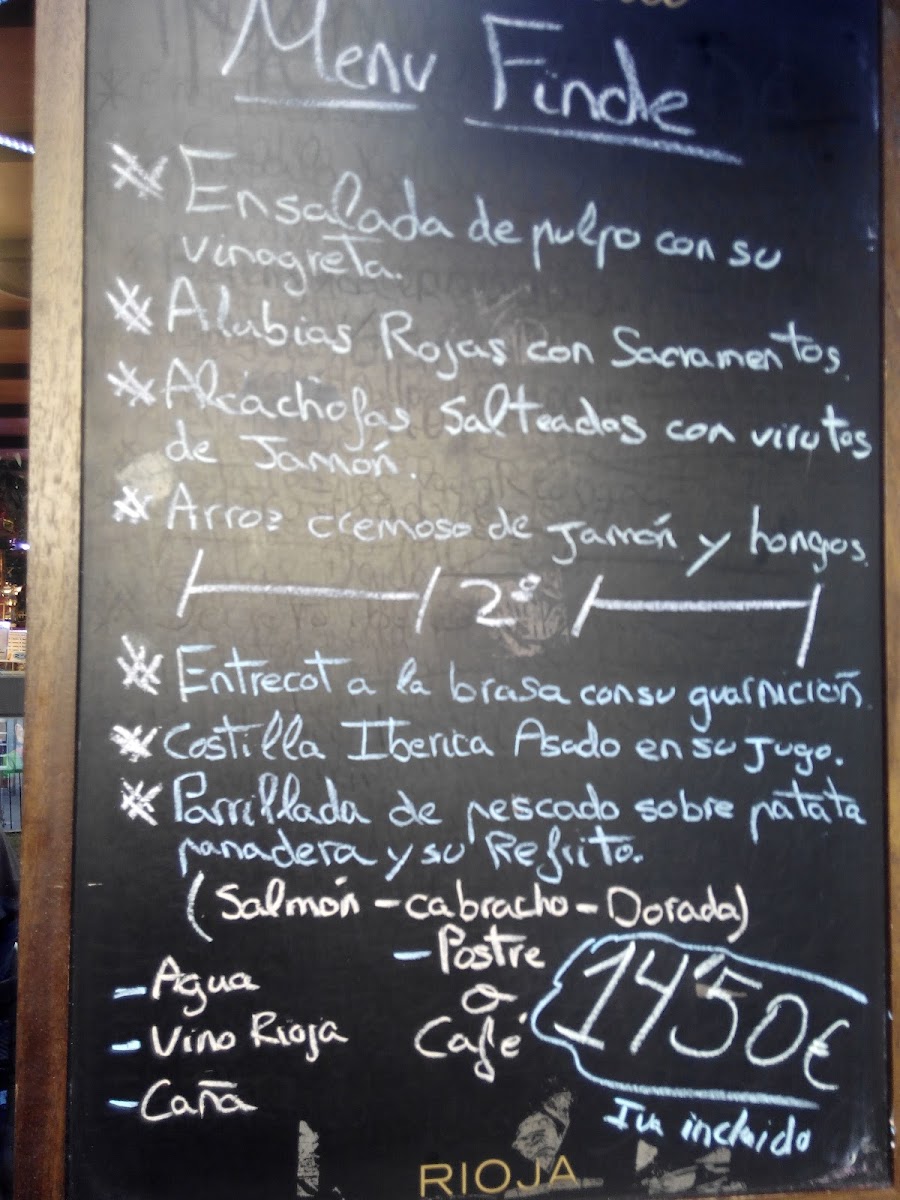 Menu Finde
* Ensalada de pulpo con su
vinagreta.
* Alubias Rojas con Sacramentos.
* Alcachofas Salteadas con virutas
de Jamón.
* Arroz cremoso de Jamón y hongos.
2º
* Entrecot a la brasa con su guarnición.
* Costilla Iberica Asado en su Jugo.
* Parrillada de pescado sobre patata
panadera y su Refrito.
(Salmón - cabracho - Dorada)
- Agua
- Vino Rioja
- Caña
- Postre
o
Café
14'50€
Iva incluido
RIOJA